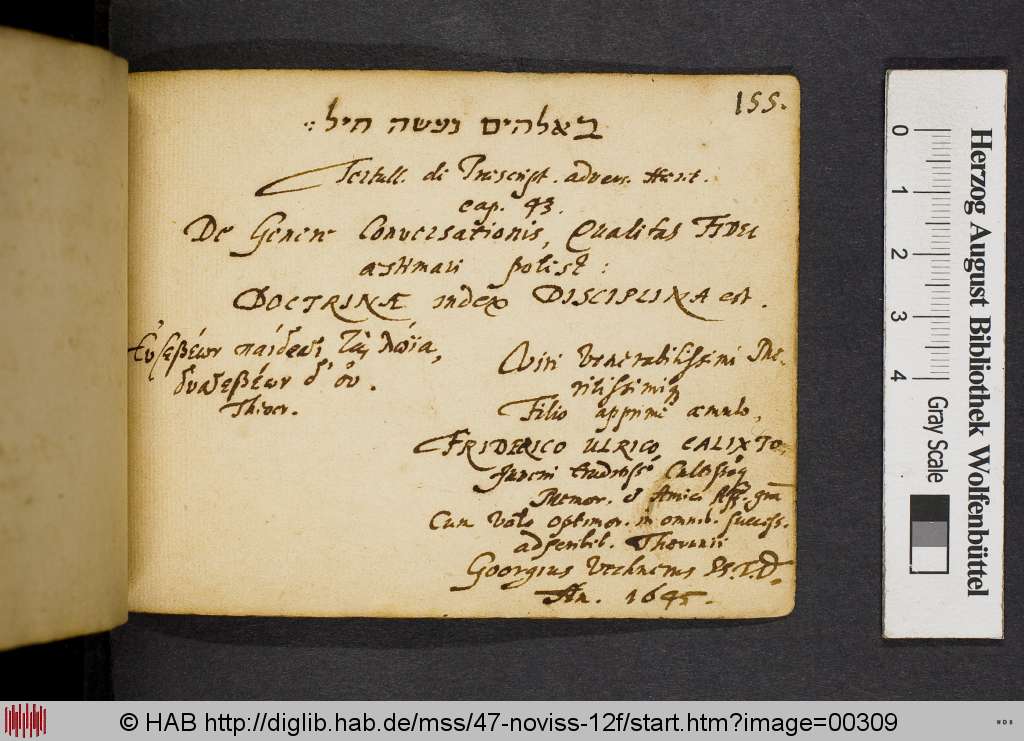 155.
באלהים נעשה חיל
Tertull. de Præscript. advers. Hæret.
cap. 43.
De Genere Conversationis, Qualitas FIDEI
æstimari potest:
DOCTRINÆ index DISCIPLINA est.
Εὐσεβέων παίδεσσι τὰ λώϊα,
δυσσεβέων δ' οὔ.
Theocr.
Viri Venerabilissimi
Filio apprime æmulo,
FRIDERICO ULRICO CALIXTO,
Juveni
Memor. & Amici
Cum voto optimor. in omnib. success.
adscribeb. Thorunii
Georgius Vechnerus SS. T. D.
An. 1645.
Herzog August Bibliothek Wolfenbüttel
0 1 2 3 4
Gray Scale
© HAB http://diglib.hab.de/mss/47-noviss-12f/start.htm?image=00309